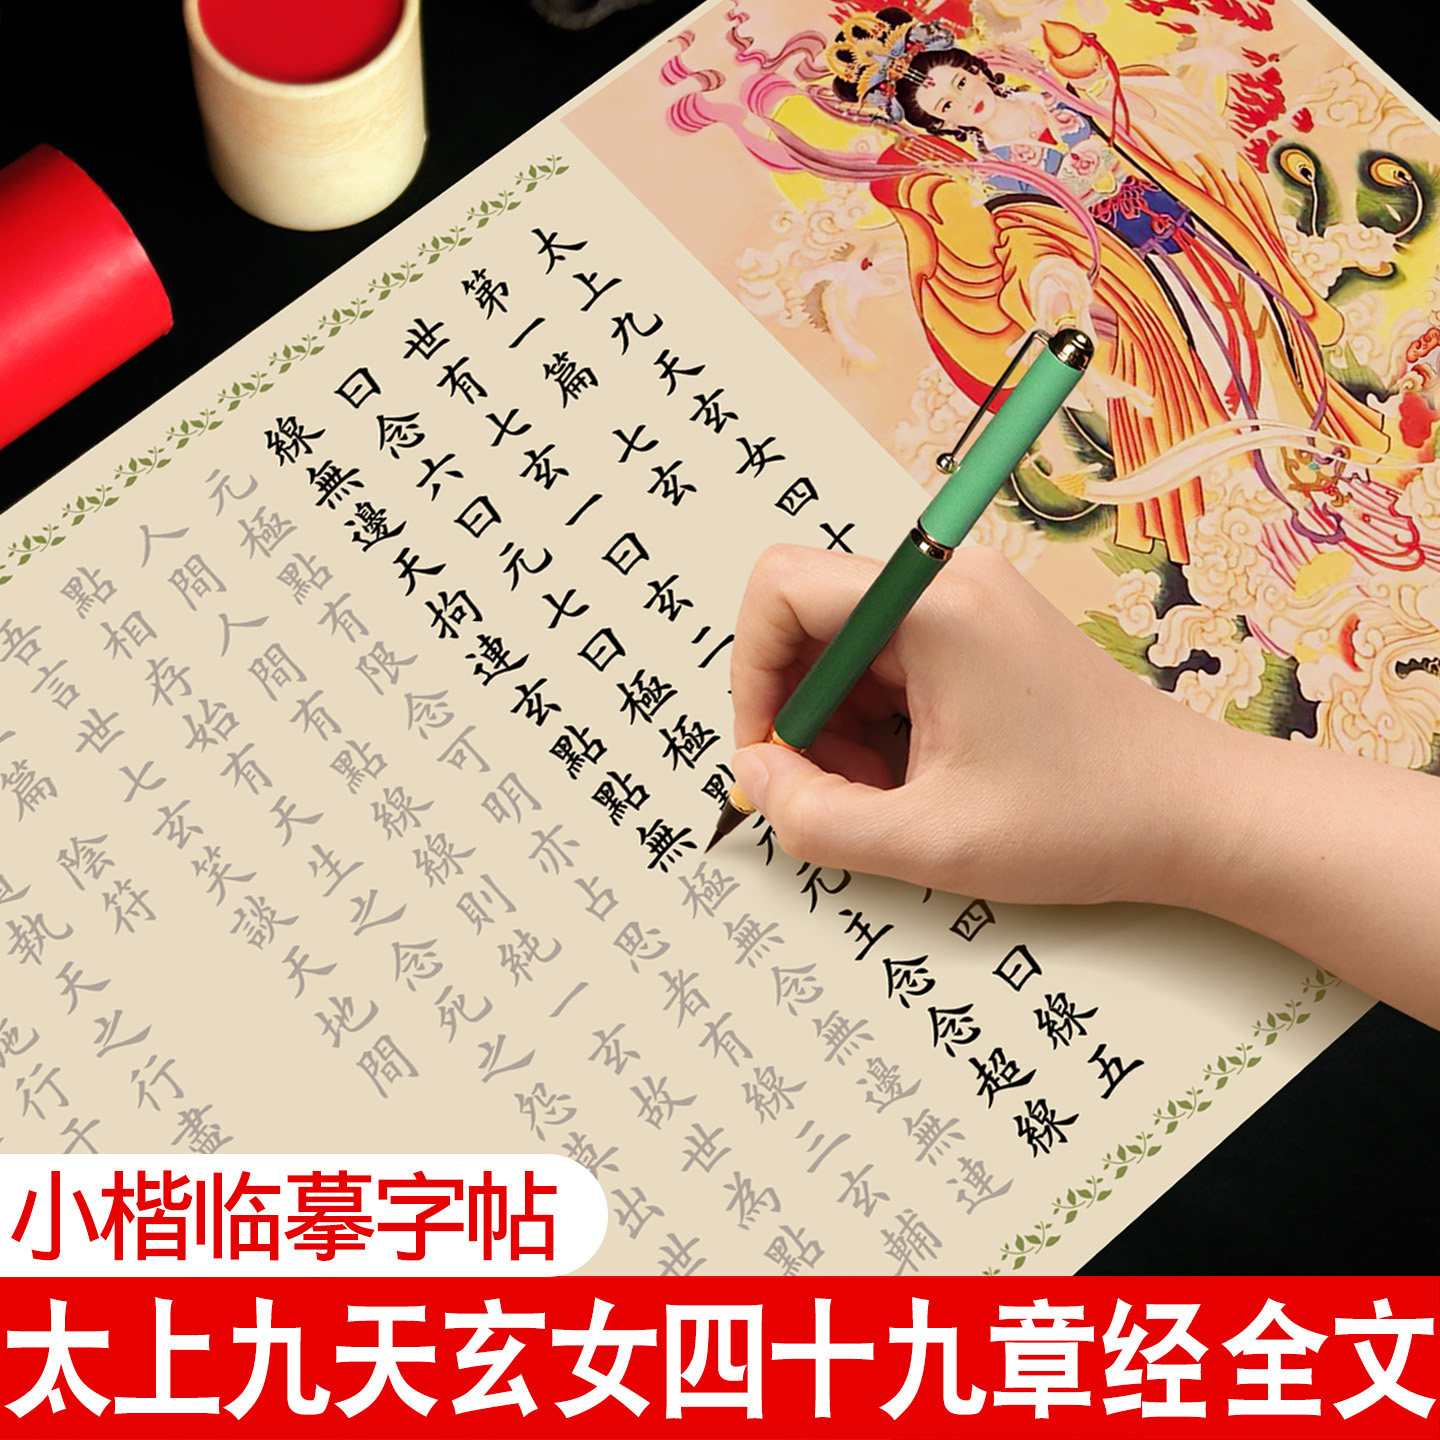 太上九天玄女四十
第一篇 七玄
世有七玄一曰玄二
四曰線五
曰念六曰元七曰極極點元
元主念念超線
線無邊天拘連玄點點無極無念無邊無連
元極點有限念可明亦占思者有線三玄輔
人間人間有點線線則純一玄故世為點
點相存始有天生之念死之怨莫出世
吾言世七玄笑談天地間
篇 陰符
執天之行盡
施行于
小楷临摹字帖
太上九天玄女四十九章经全文